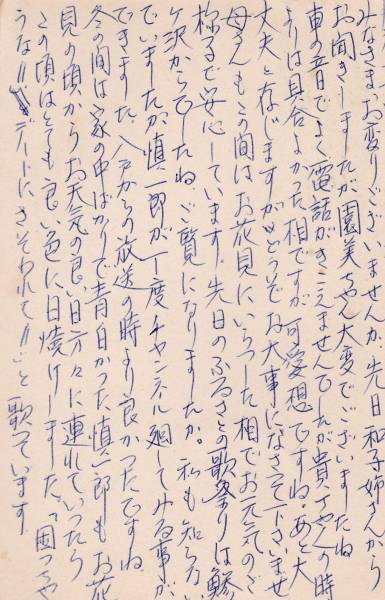 みなさまお変りございませんか。先日和子姉さんから
お聞きしましたが園美ちゃん大変でございましたね
車の音でよく電話がきこえませんでしたが貴ちゃんの時
よりは具合よかった相ですが可愛想ですね。あと大
丈夫と存じますがどうぞお大事になさって下さいませ
母さんもこの間はお花見にいらっした相でお元気のご
様子で安心しています。先日のふるさとの歌祭りは鰺
ヶ沢からでしたね。ご覧になりましたか。私も知らない
でいましたが、慎一郎が丁度チャンネル廻してみる事が
できました。八戸からの放送の時より良かったですね。
冬の間は家の中ばかりで青白かった慎一郎もお花
見の頃からお天気の良い日方々に連れていったら
この頃はとても良い色に日焼けしました。「困っちゃ
うな〃デートにさそわれて〃」と歌っています